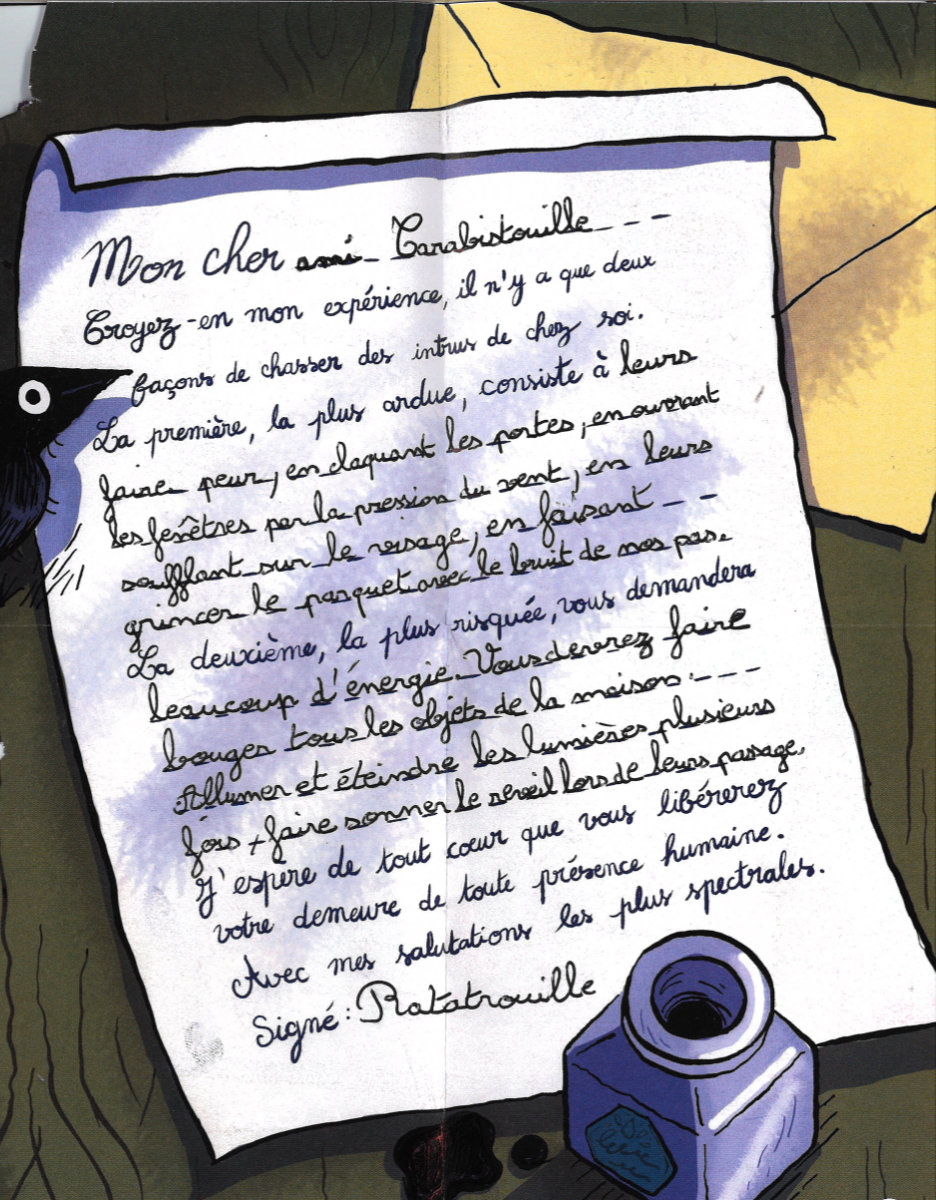 Mon cher ami_ Carabistouille_ _ _
Croyez-en mon expérience, il n'y a que deux
façons de chasser des intrus de chez soi.
La première, la plus ardue, consiste à leurs
faire peur, en claquant les portes, en ouvrant
les fenêtres par la pression du vent, en leurs
soufflant sur le visage, en faisant _ _
grincer le parquet avec le bruit de nos pas.
La deuxième, la plus risquée, vous demandera
beaucoup d'énergie. Vous devrez faire
bouger tous les objets de la maison. _ _ _
Allumer et éteindre les lumières plusieurs
fois + faire sonner le réveil lors de leurs passage.
J'espère de tout cœur que vous libérerez
votre demeure de toute présence humaine.
Avec mes salutations les plus spectrales.
Signé : Ratatrouille